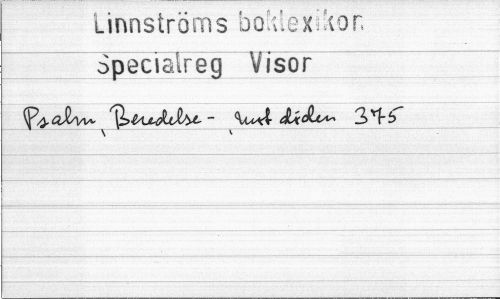 Linnströms boklexikon
Specialreg Visor
Psalm, Beredelse-, mot döden 375